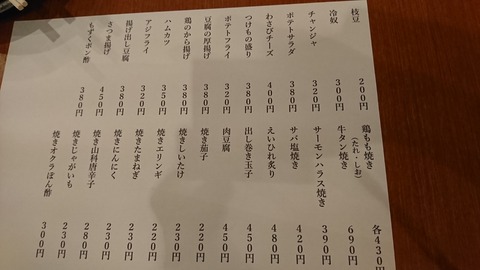 枝豆 200円
冷奴 300円
チャンジャ 320円
ポテトサラダ 380円
わさびチーズ 400円
つけもの盛り 380円
ポテトフライ 320円
豆腐の厚揚げ 380円
鶏のから揚げ 380円
ハムカツ 350円
アジフライ 320円
揚げ出し豆腐 380円
さつま揚げ 450円
もずくポン酢 380円
鶏もも焼き (たれ・しお) 各430円
牛タン焼き 690円
サーモンハラス焼き 390円
サバ塩焼き 420円
えいひれ炙り 480円
出し巻き玉子 450円
肉豆腐 450円
焼き茄子 220円
焼きしいたけ 230円
焼きエリンギ 220円
焼きたまねぎ 230円
焼きにんにく 230円
焼き山科唐辛子 280円
焼きじゃがいも 230円
焼きオクラぽん酢 300円